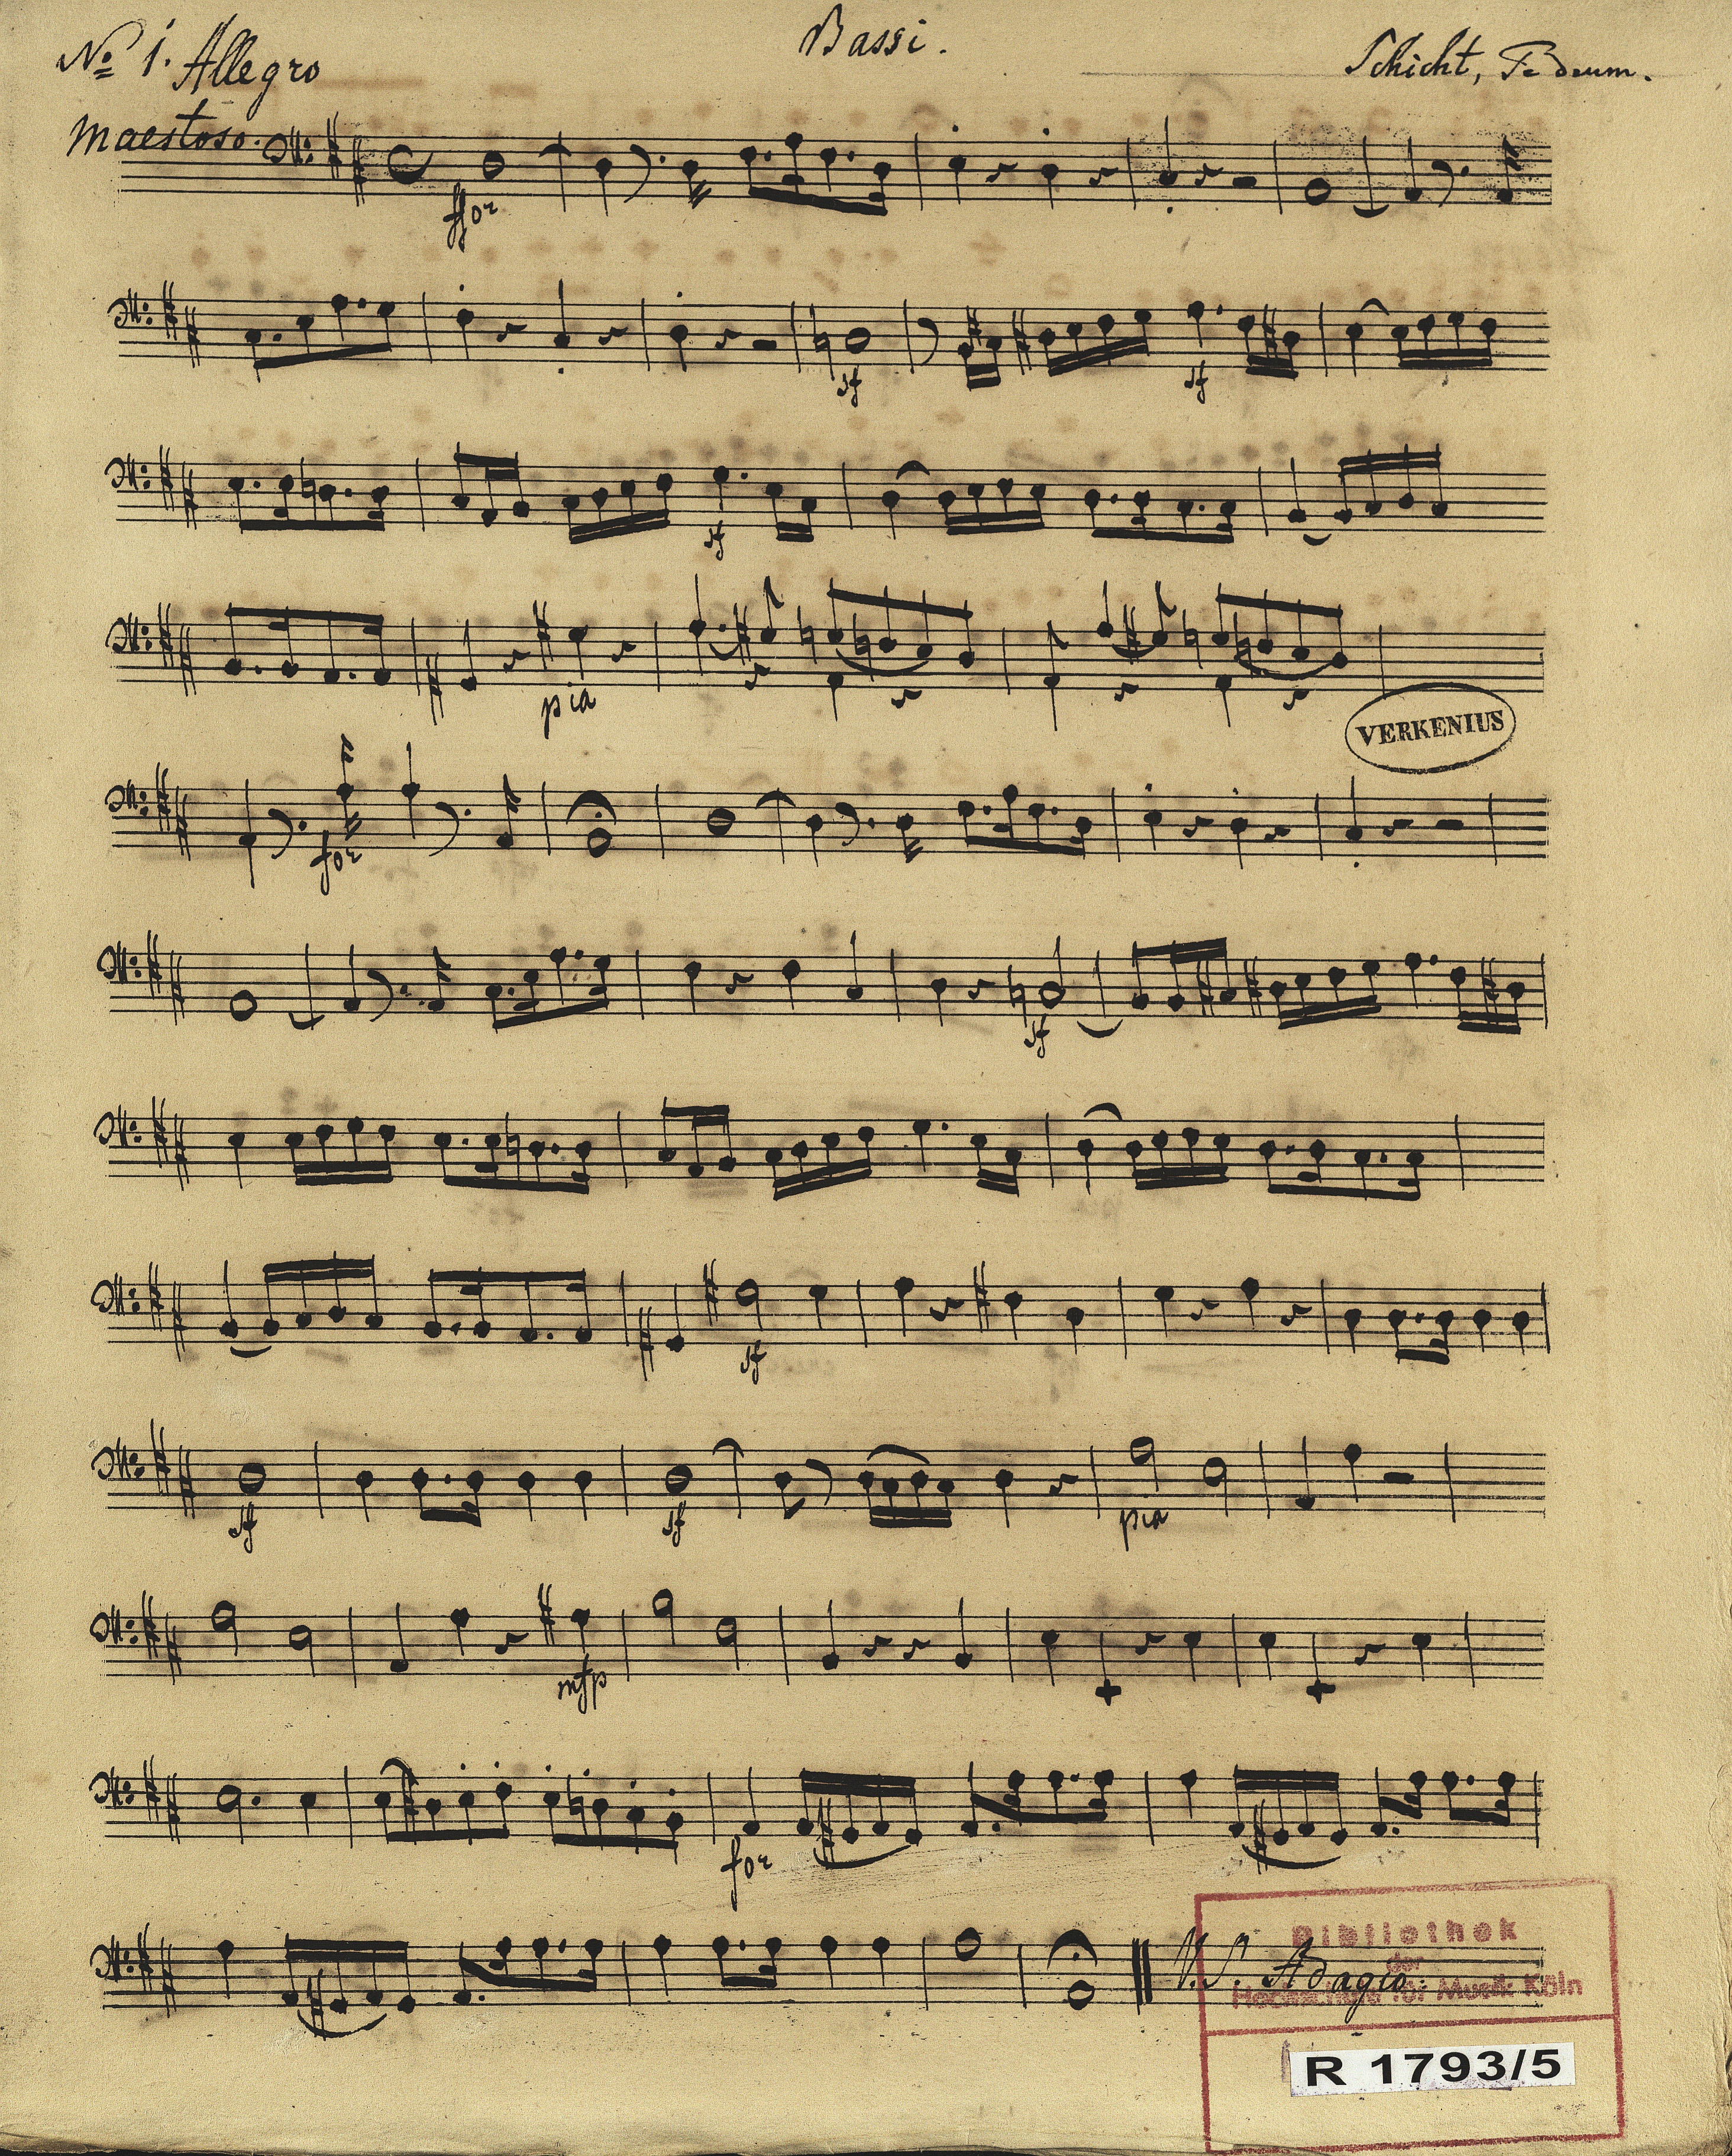 Bassi.
No 1. Allegro
Schicht, Te deum.
maestoso.
ffor
sf sf
sf
pia
VERKENIUS
for
sf
sf
sf sf pia
mfp
for
V. S. Adagio
Bibliothek
der
Hochschule für Musik Köln
R 1793/5